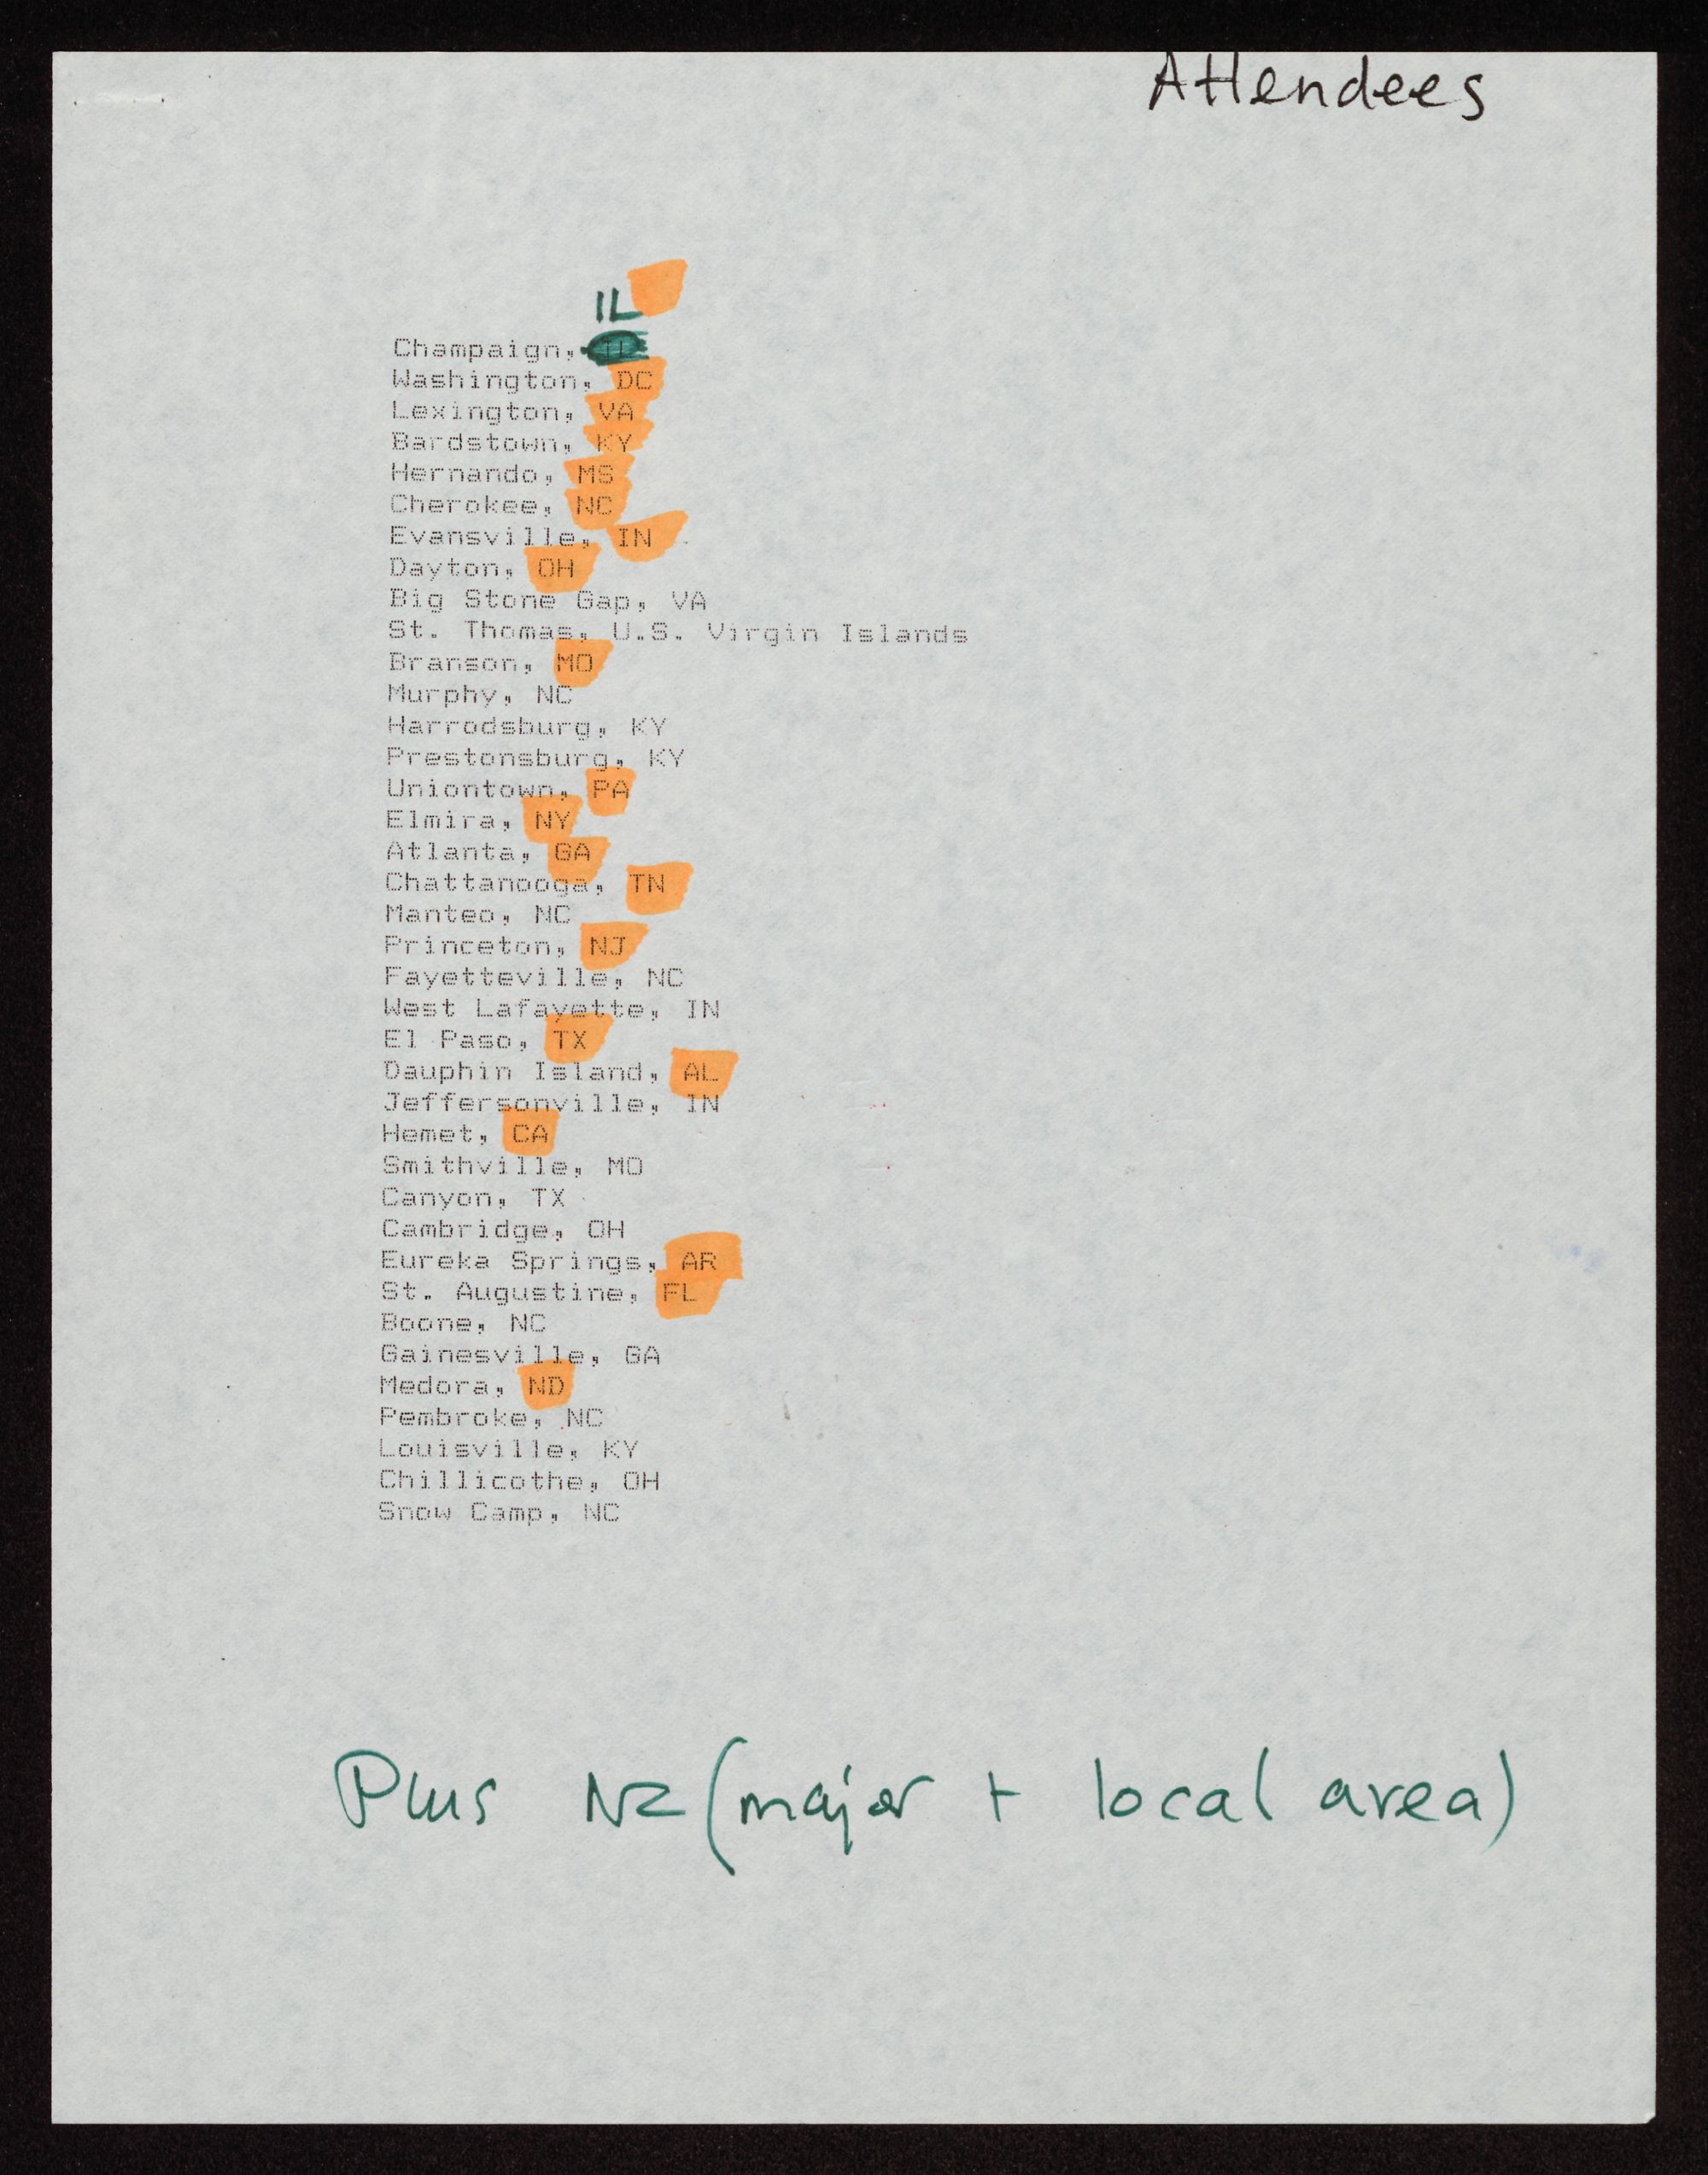 Attendees
IL
Champaign,
Washington, DC
Lexington, VA
Bardstown, KY
Hernando, MS
Cherokee, NC
Evansville, IN
Dayton, OH
Big Stone Gap, VA
St. Thomas, U.S. Virgin Islands
Branson, MO
Murphy, NC
Harrodsburg, KY
Prestonsburg, KY
Uniontown, PA
Elmira, NY
Atlanta, GA
Chattanooga, TN
Manteo, NC
Princeton, NJ
Fayetteville, NC
West Lafayette, IN
El Paso, TX
Dauphin Island, AL
Jeffersonville, IN
Hemet, CA
Smithville, MO
Canyon, TX
Cambridge, OH
Eureka Springs, AR
St. Augustine, FL
Boone, NC
Gainesville, GA
Medora, ND
Pembroke, NC
Louisville, KY
Chillicothe, OH
Snow Camp, NC
Plus NZ (major + local area)